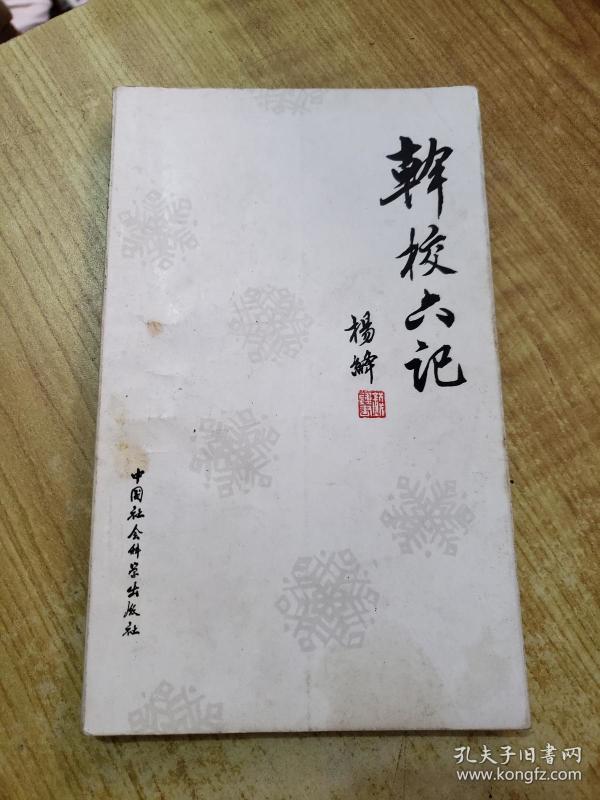 幹校六记
楊絳
中国社会科学出版社
孔夫子旧書网
www.kongfz.com